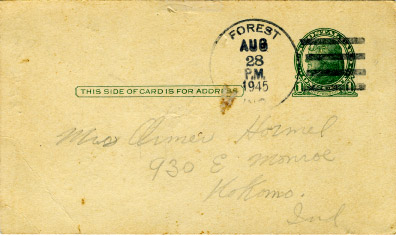 FOREST
AUG
28
P.M.
1945
THIS SIDE OF CARD IS FOR ADDRESS
1 1
Mrs Hormel
930 E Monroe
Kokomo.
Ind